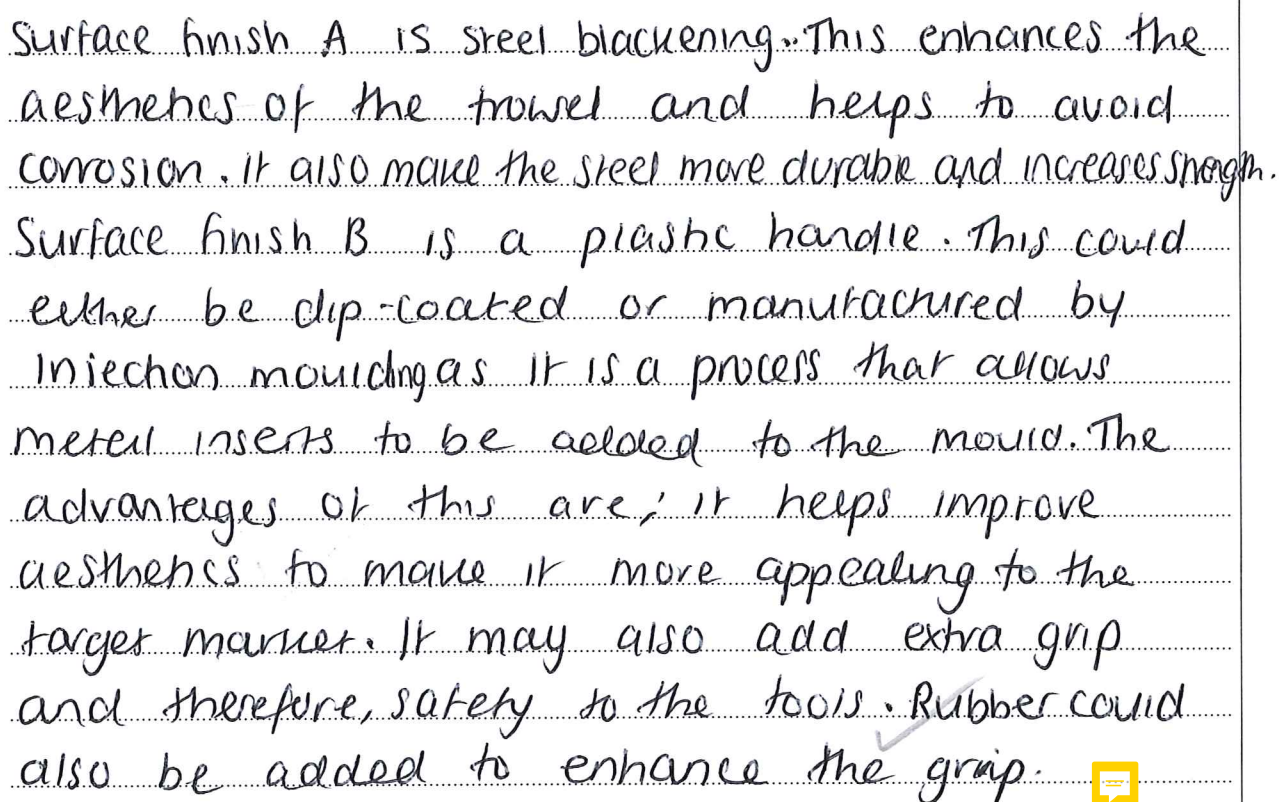 Surface finish A is steel blackening. This enhances the
aesthetics of the trowel and helps to avoid
corrosion. It also make the steel more durable and increases strength.
Surface finish B is a plastic handle. This could
either be dip-coated or manufactured by
Injection moulding as it is a process that allows
metal inserts to be added to the mould. The
advantages of this are; it helps improve
aesthetics to make it more appealing to the
target market. It may also add extra grip
and therefore, safety to the tools. Rubber could
also be added to enhance the grip.